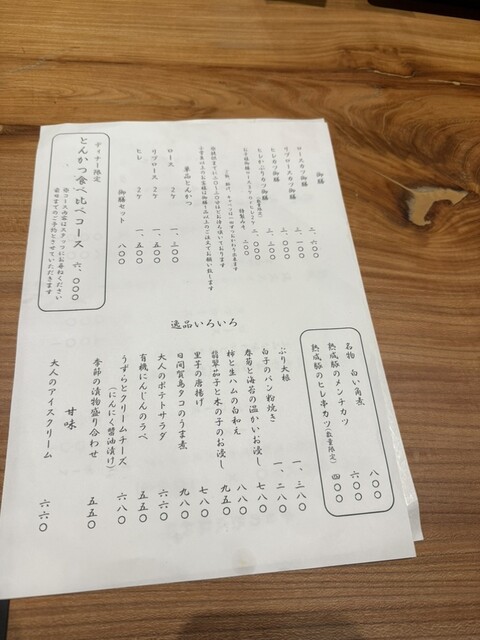 御膳
ロースカツ御膳 二、六〇〇
リブロースカツ御膳
ヒレカツ御膳
ヒレかぶりカツ御膳
(数量限定)
特製みそ 二〇〇
単品とんかつ
ロース 2ケ 一、三〇〇
リブロース 2ケ 一、五〇〇
ヒレ 2ケ 一、五〇〇
御膳セット 八〇〇
ディナー限定
とんかつ食べ比べコース 六、〇〇〇
※コース内容はスタッフにお尋ねください
前日までのご予約とさせていただきます
逸品いろいろ
名物 白い角煮 八〇〇
熟成豚のメンチカツ 六〇〇
熟成豚のヒレ串カツ(数量限定) 四〇〇
ぶり大根 一、三八〇
白子のパン粉焼き 一、二八〇
春菊と海苔の温かいお浸し 七八〇
柿と生ハムの白和え 八八〇
翡翠茄子と木の子のお浸し 九五〇
里芋の唐揚げ 七八〇
日間賀島タコのうま煮 九八〇
大人のポテトサラダ 六六〇
有機にんじんのラペ 五五〇
うずらとクリームチーズ 六八〇
(にんにく醤油漬け)
季節の漬物盛り合わせ 五五〇
甘味
大人のアイスクリーム 六六〇